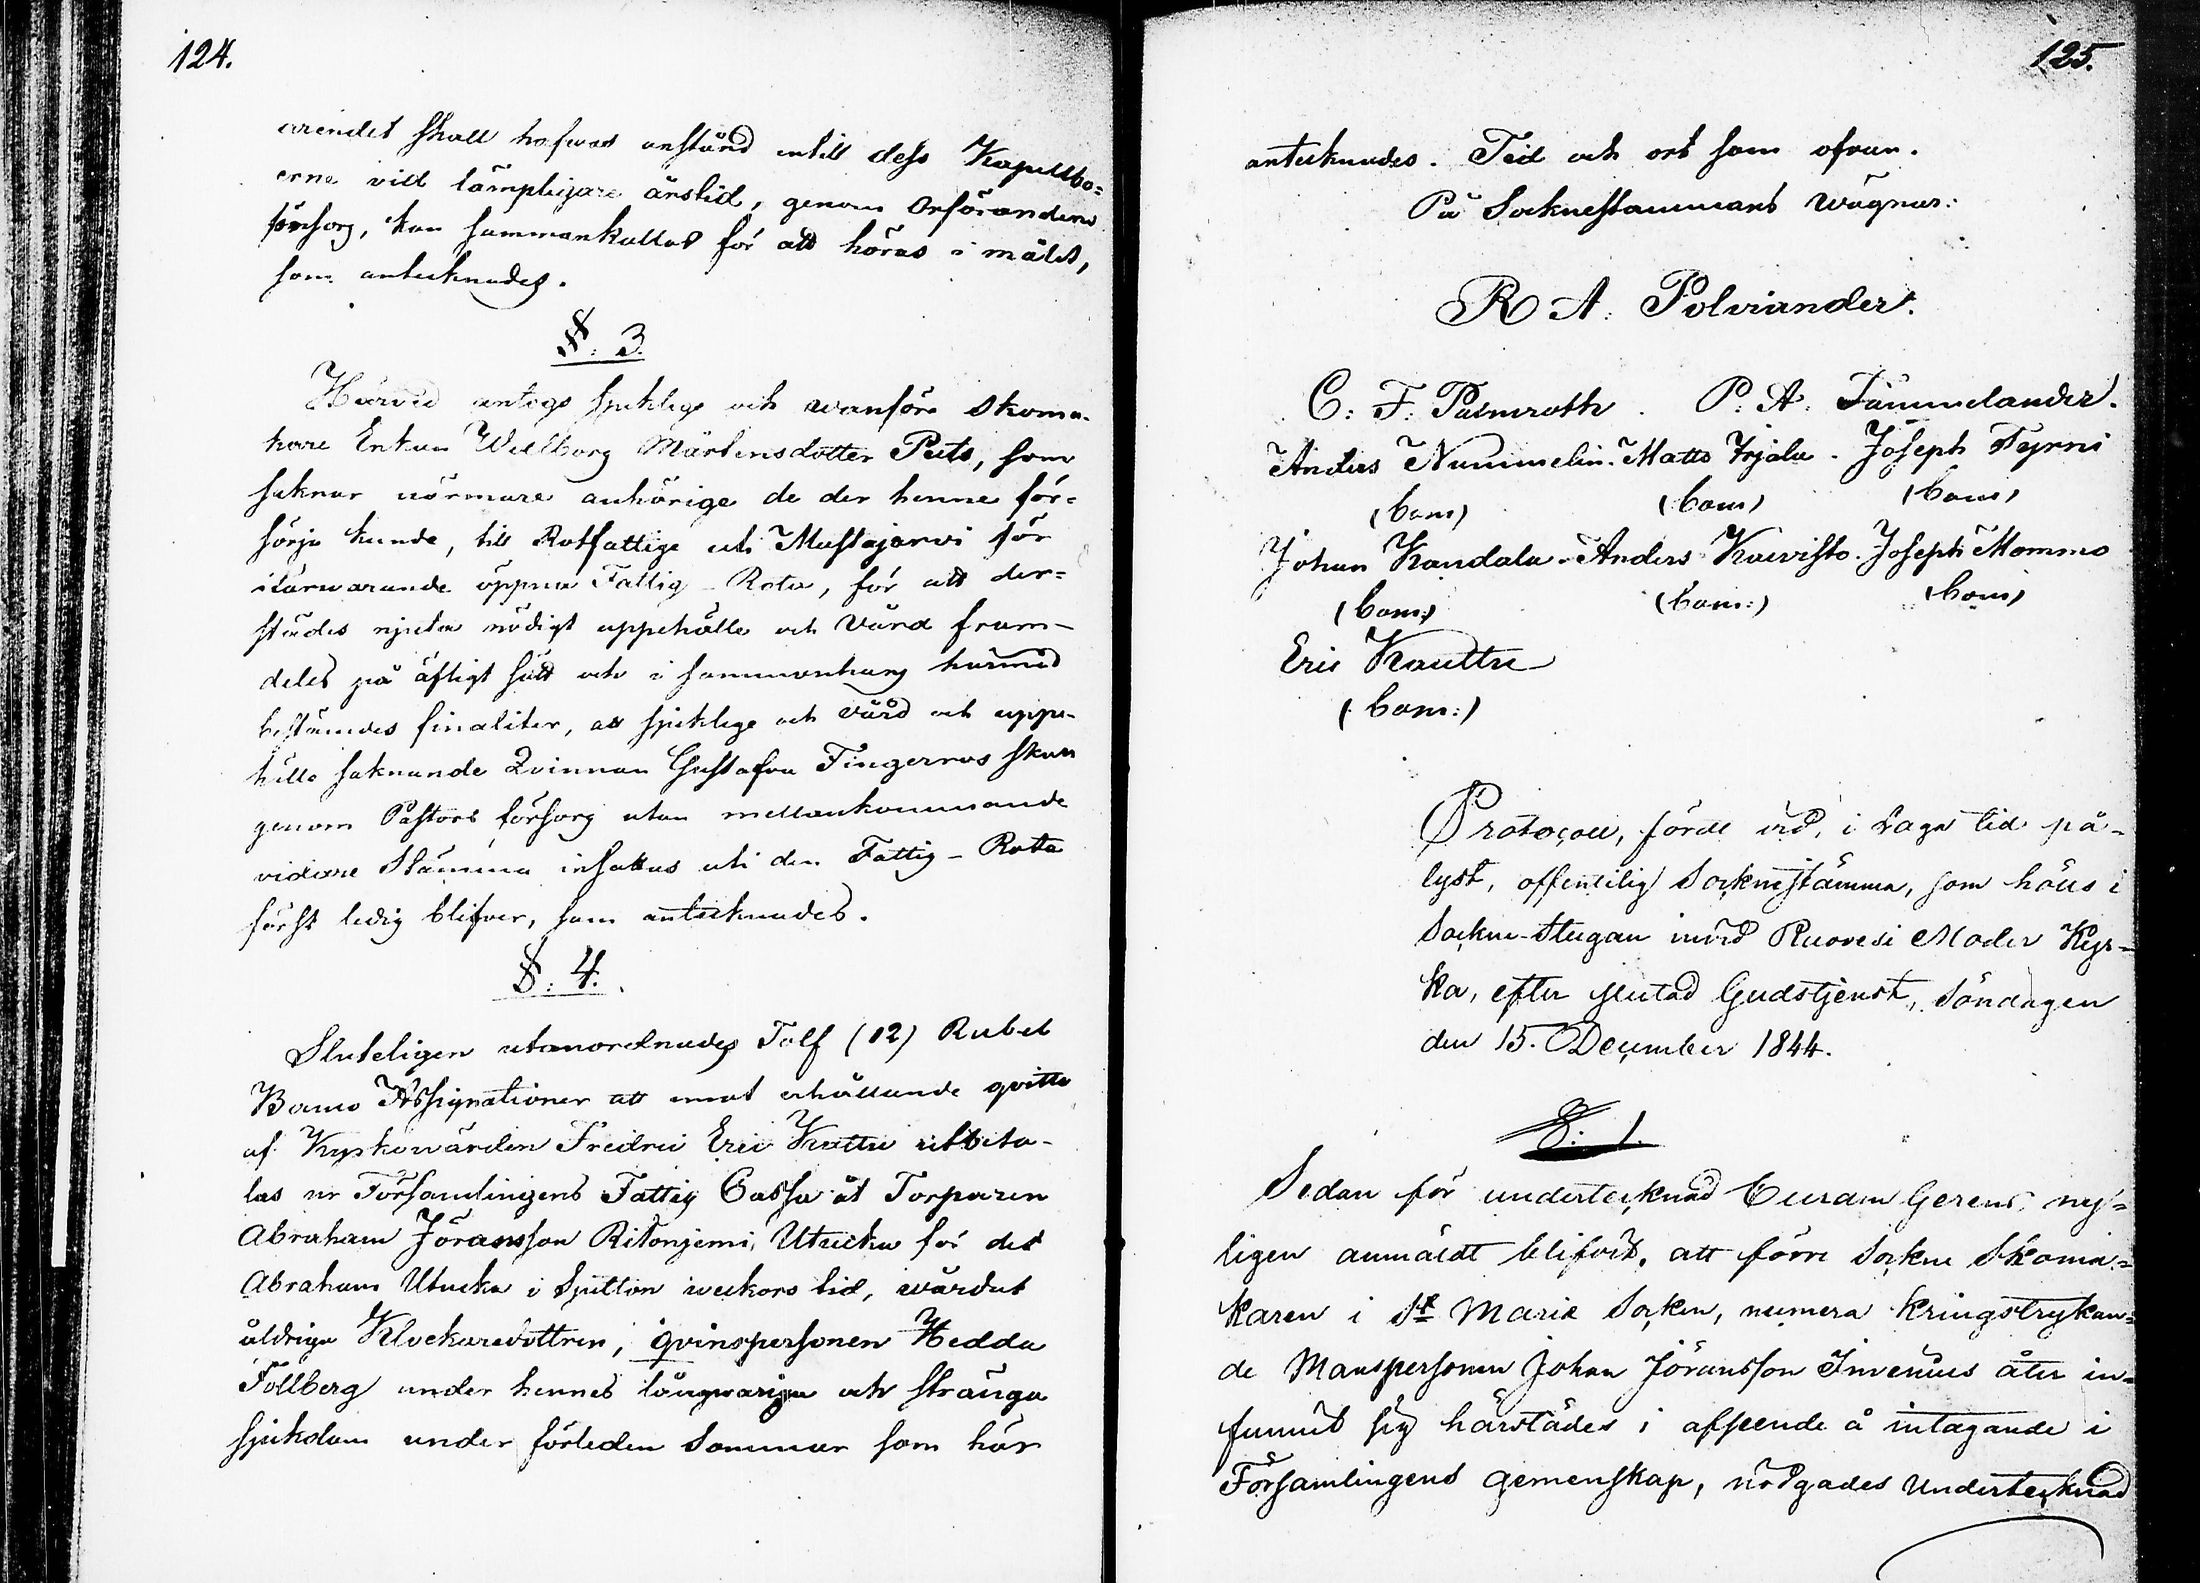 124.
ärendet skall hafvas anstånd intill dess Kapellbo=
erne vid lämpligare årstid, genom Ordförandens
försorg, kan sammankallas för att höras i målet,
som antecknades.
§. 3.
Härvid antogs sjuklige och wanföre Skoma-
kare Enkan Wallborg Mårtensdotter Puts, som
saknar närmare anhörige de der henne för=
sörja kunde, till Rotfattige uti Mustajärvi för
närwarande öppna Fattig-Rota, för att der=
städes njuta nödigt uppehälle och Vård fram-
deles på öfligt sätt och i sammanhang härmed
bestämdes finaliter, att sjuklige och vård och uppe-
hälle saknande Qvinnan Gustafva Fingerroos skall
genom Pastors försorg utan mellankommande
vidare Stämma insättas uti den Fattig-Rota
först ledig blifver, som antecknades.
§. 4.
Sluteligen utanordnades Tolf (12) Rubel
Banco Assignationer att emot erhållande qvitto
af Kyrkowärden Fredric Eric Kauttu utbeta-
las ur Församlingens Fattig Cassa åt Torparen
Abraham Jöransson Ritoniemi, Utucka för det
Abraham Utucka i Sjutton weckors tid, wårdat
åldriga Klockaredottren, qvinspersonen Hedda
Follberg under hennes långwariga och stränga
sjukdom under förleden Sommar som här
125.
antecknades. Tid och ort som ofvan.
På Socknestämmans wägnar:
R A. Polviander.
C. F. Palmroth. P. A. Tammelander.
Anders Nummelin. Matts Yrjälä. Joseph Tyrni
(bom) (bom) (bom)
Johan Kandala. Anders Koivisto. Joseph Mommo
(bom:) (bom:) (bom)
Eric Kauttu
(bom:)
Protocoll, fördt vid, i laga tid på-
lyst, offentelig Sockne stämma, som hölls i
Sockne-Stugan invid Ruovesi Moder Kyr=
ka, efter slutad Gudstjenst, Söndagen
den 15. December 1844.
§. 1.
Sedan för undertecknad Curam Gerens, ny=
ligen anmäldt blifvit, att förre Sockne Skoma=
karen i St Mariæ Socken, numera kringstrykan=
de Manspersonen Johan Jöransson Invenius åter in=
funnit sig härstädes i afseende å intagande i
Församlingens gemenskap, nödgades Undertecknad